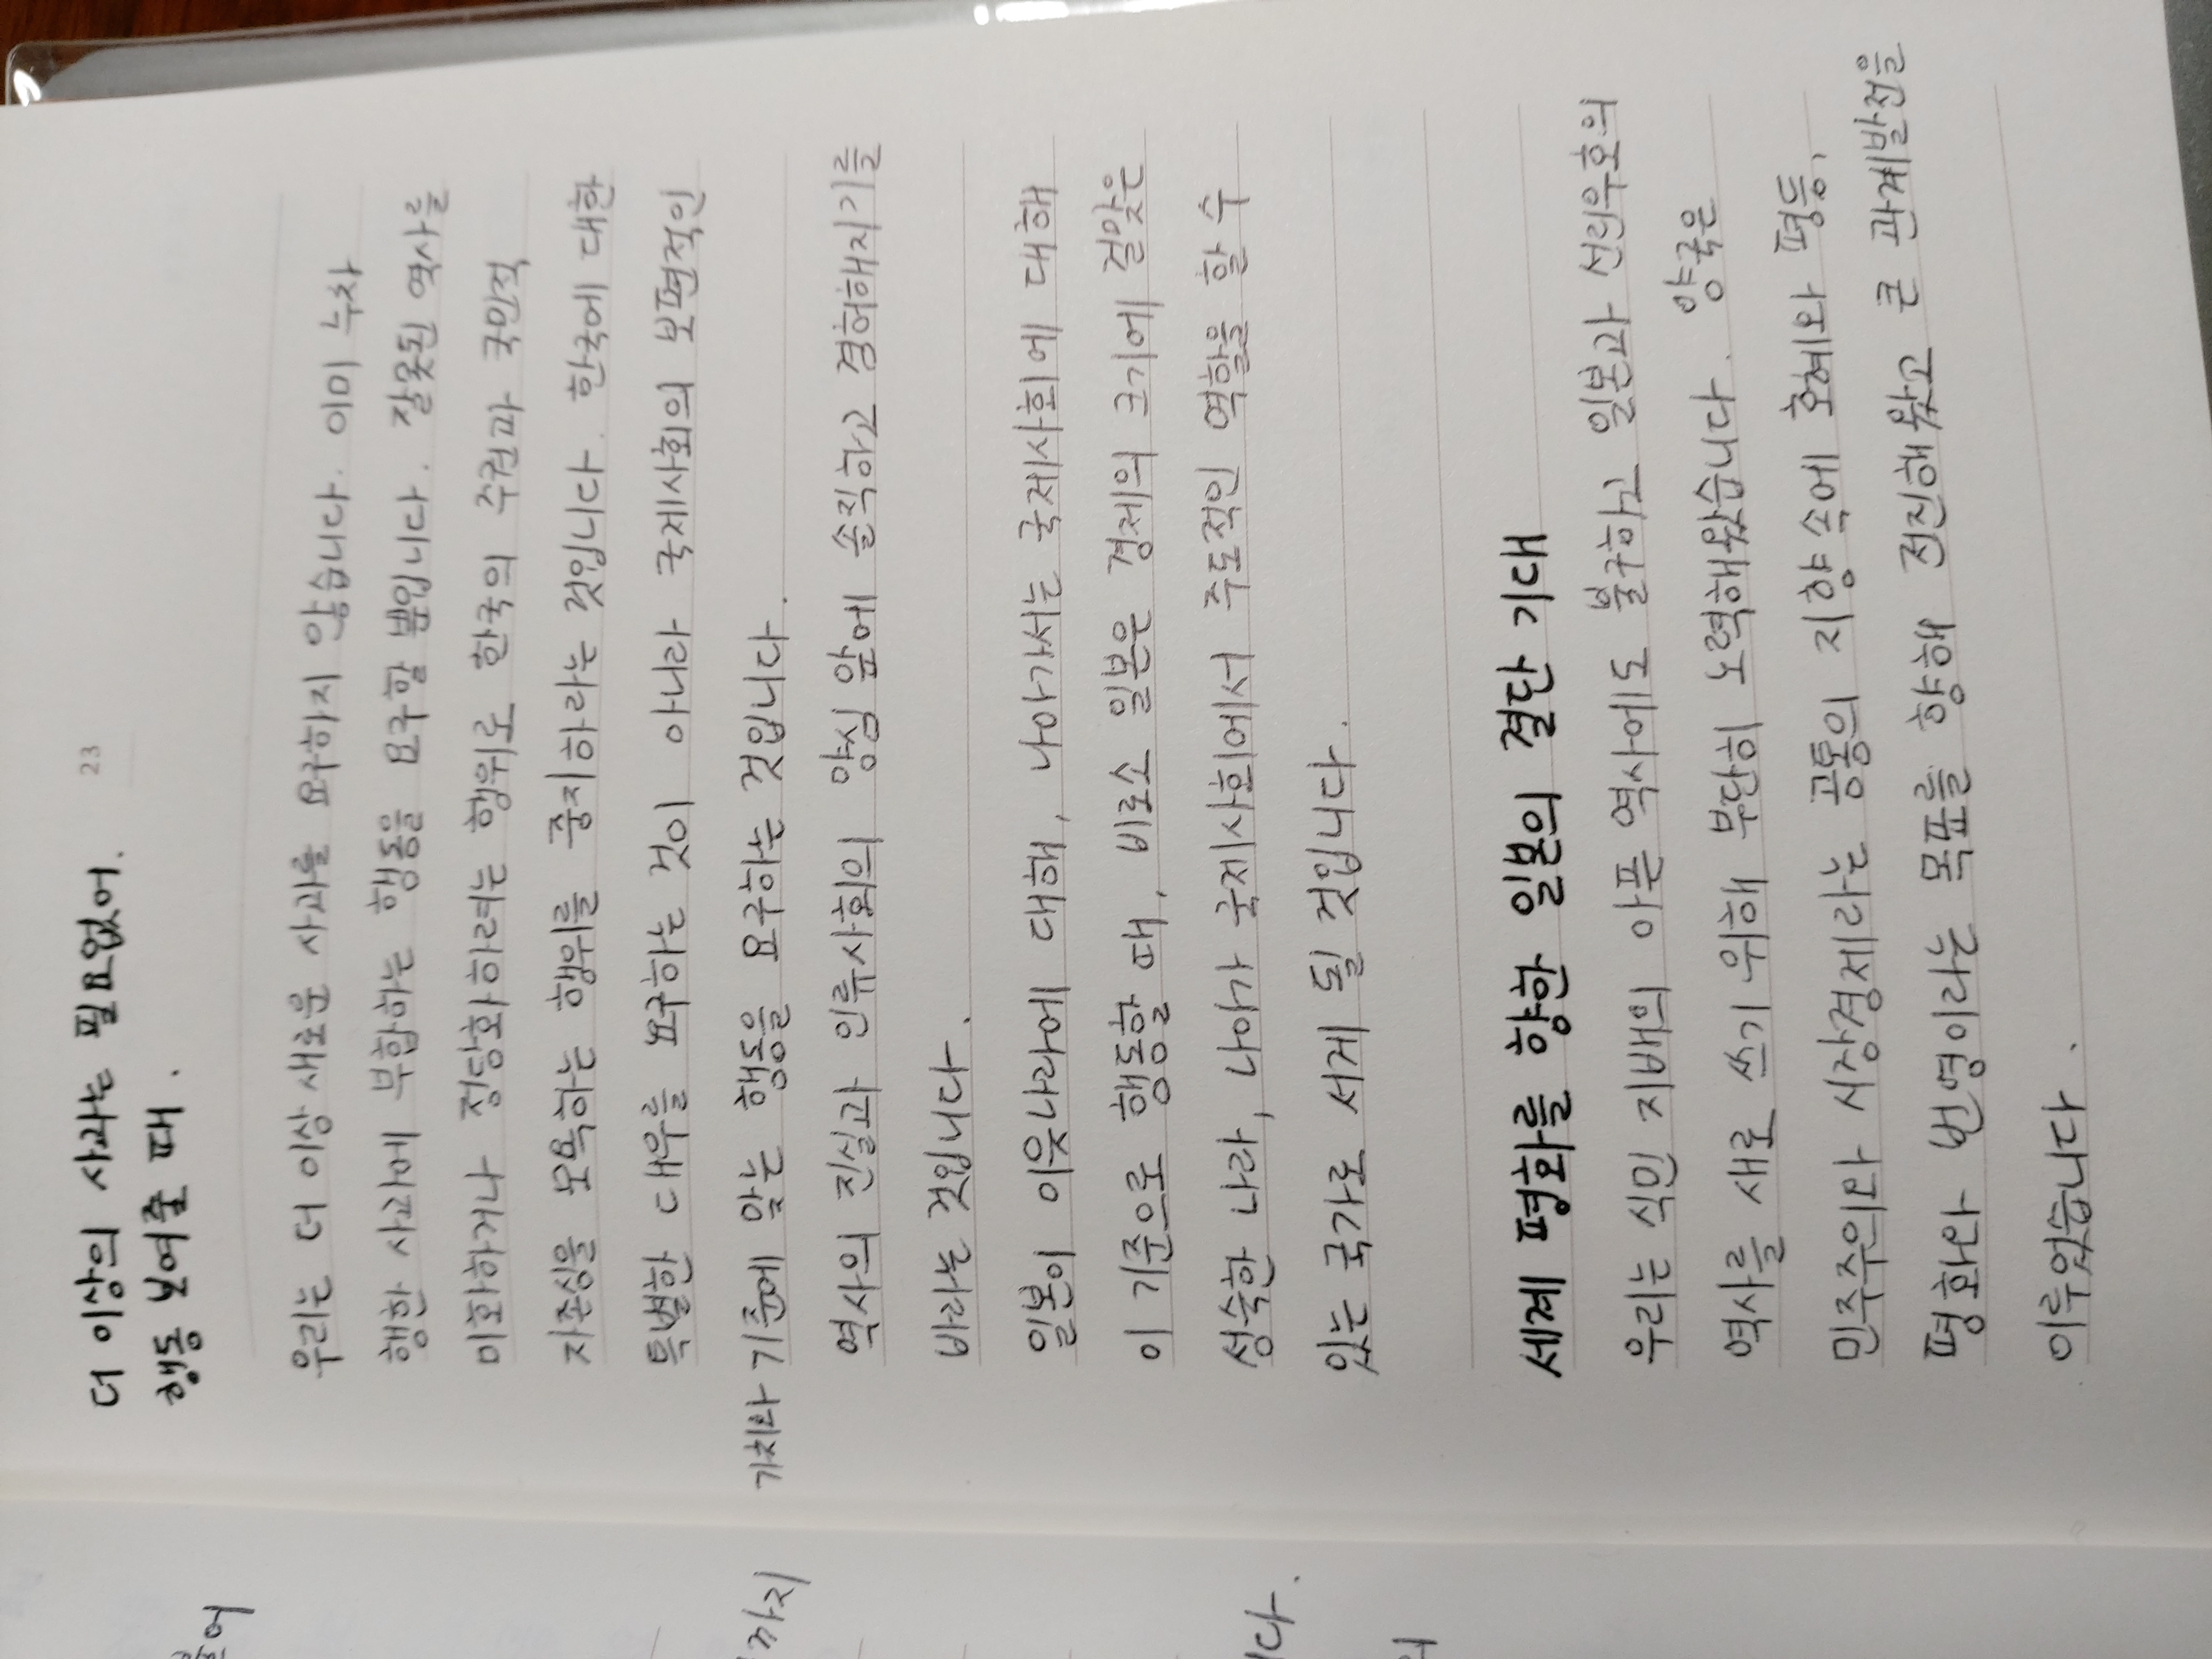 23
더 이상의 사과는 필요없어.
행동 보여줄 때.
우리는 더 이상 새로운 사과를 요구하지 않습니다. 이미 누차
행한 사과에 부합하는 행동을 요구할 뿐입니다. 잘못된 역사를
미화하거나 정당화하려는 행위로 한국의 주권과 국민적
자존심을 모욕하는 행위를 중지하라는 것입니다. 한국에 대한
특별한 대우를 요구하는 것이 아니라 국제사회의 보편적인
가치와 기준에 맞는 행동을 요구하는 것입니다.
역사의 진실과 인류사회의 양심 앞에 솔직하고 겸허해지기를
바라는 것입니다.
일본이 이웃나라에 대해, 나아가서는 국제사회에 대해
이 기준으로 행동할 때, 비로소 일본은 경제의 크기에 걸맞은
성숙한 나라, 나아가 국제사회에서 주도적인 역할을 할 수
있는 국가로 서게 될 것입니다.
세계 평화를 향한 일본의 결단 기대
우리는 식민 지배의 아픈 역사에도 불구하고 일본과 선린우호의
역사를 새로 쓰기 위해 부단히 노력해왔습니다. 양국은
민주주의와 시장경제라는 공통의 지향 속에 호혜와 평등,
평화와 번영이라는 목표를 향해 전진해왔고 큰 관계발전을
이루었습니다.
까지
니다.